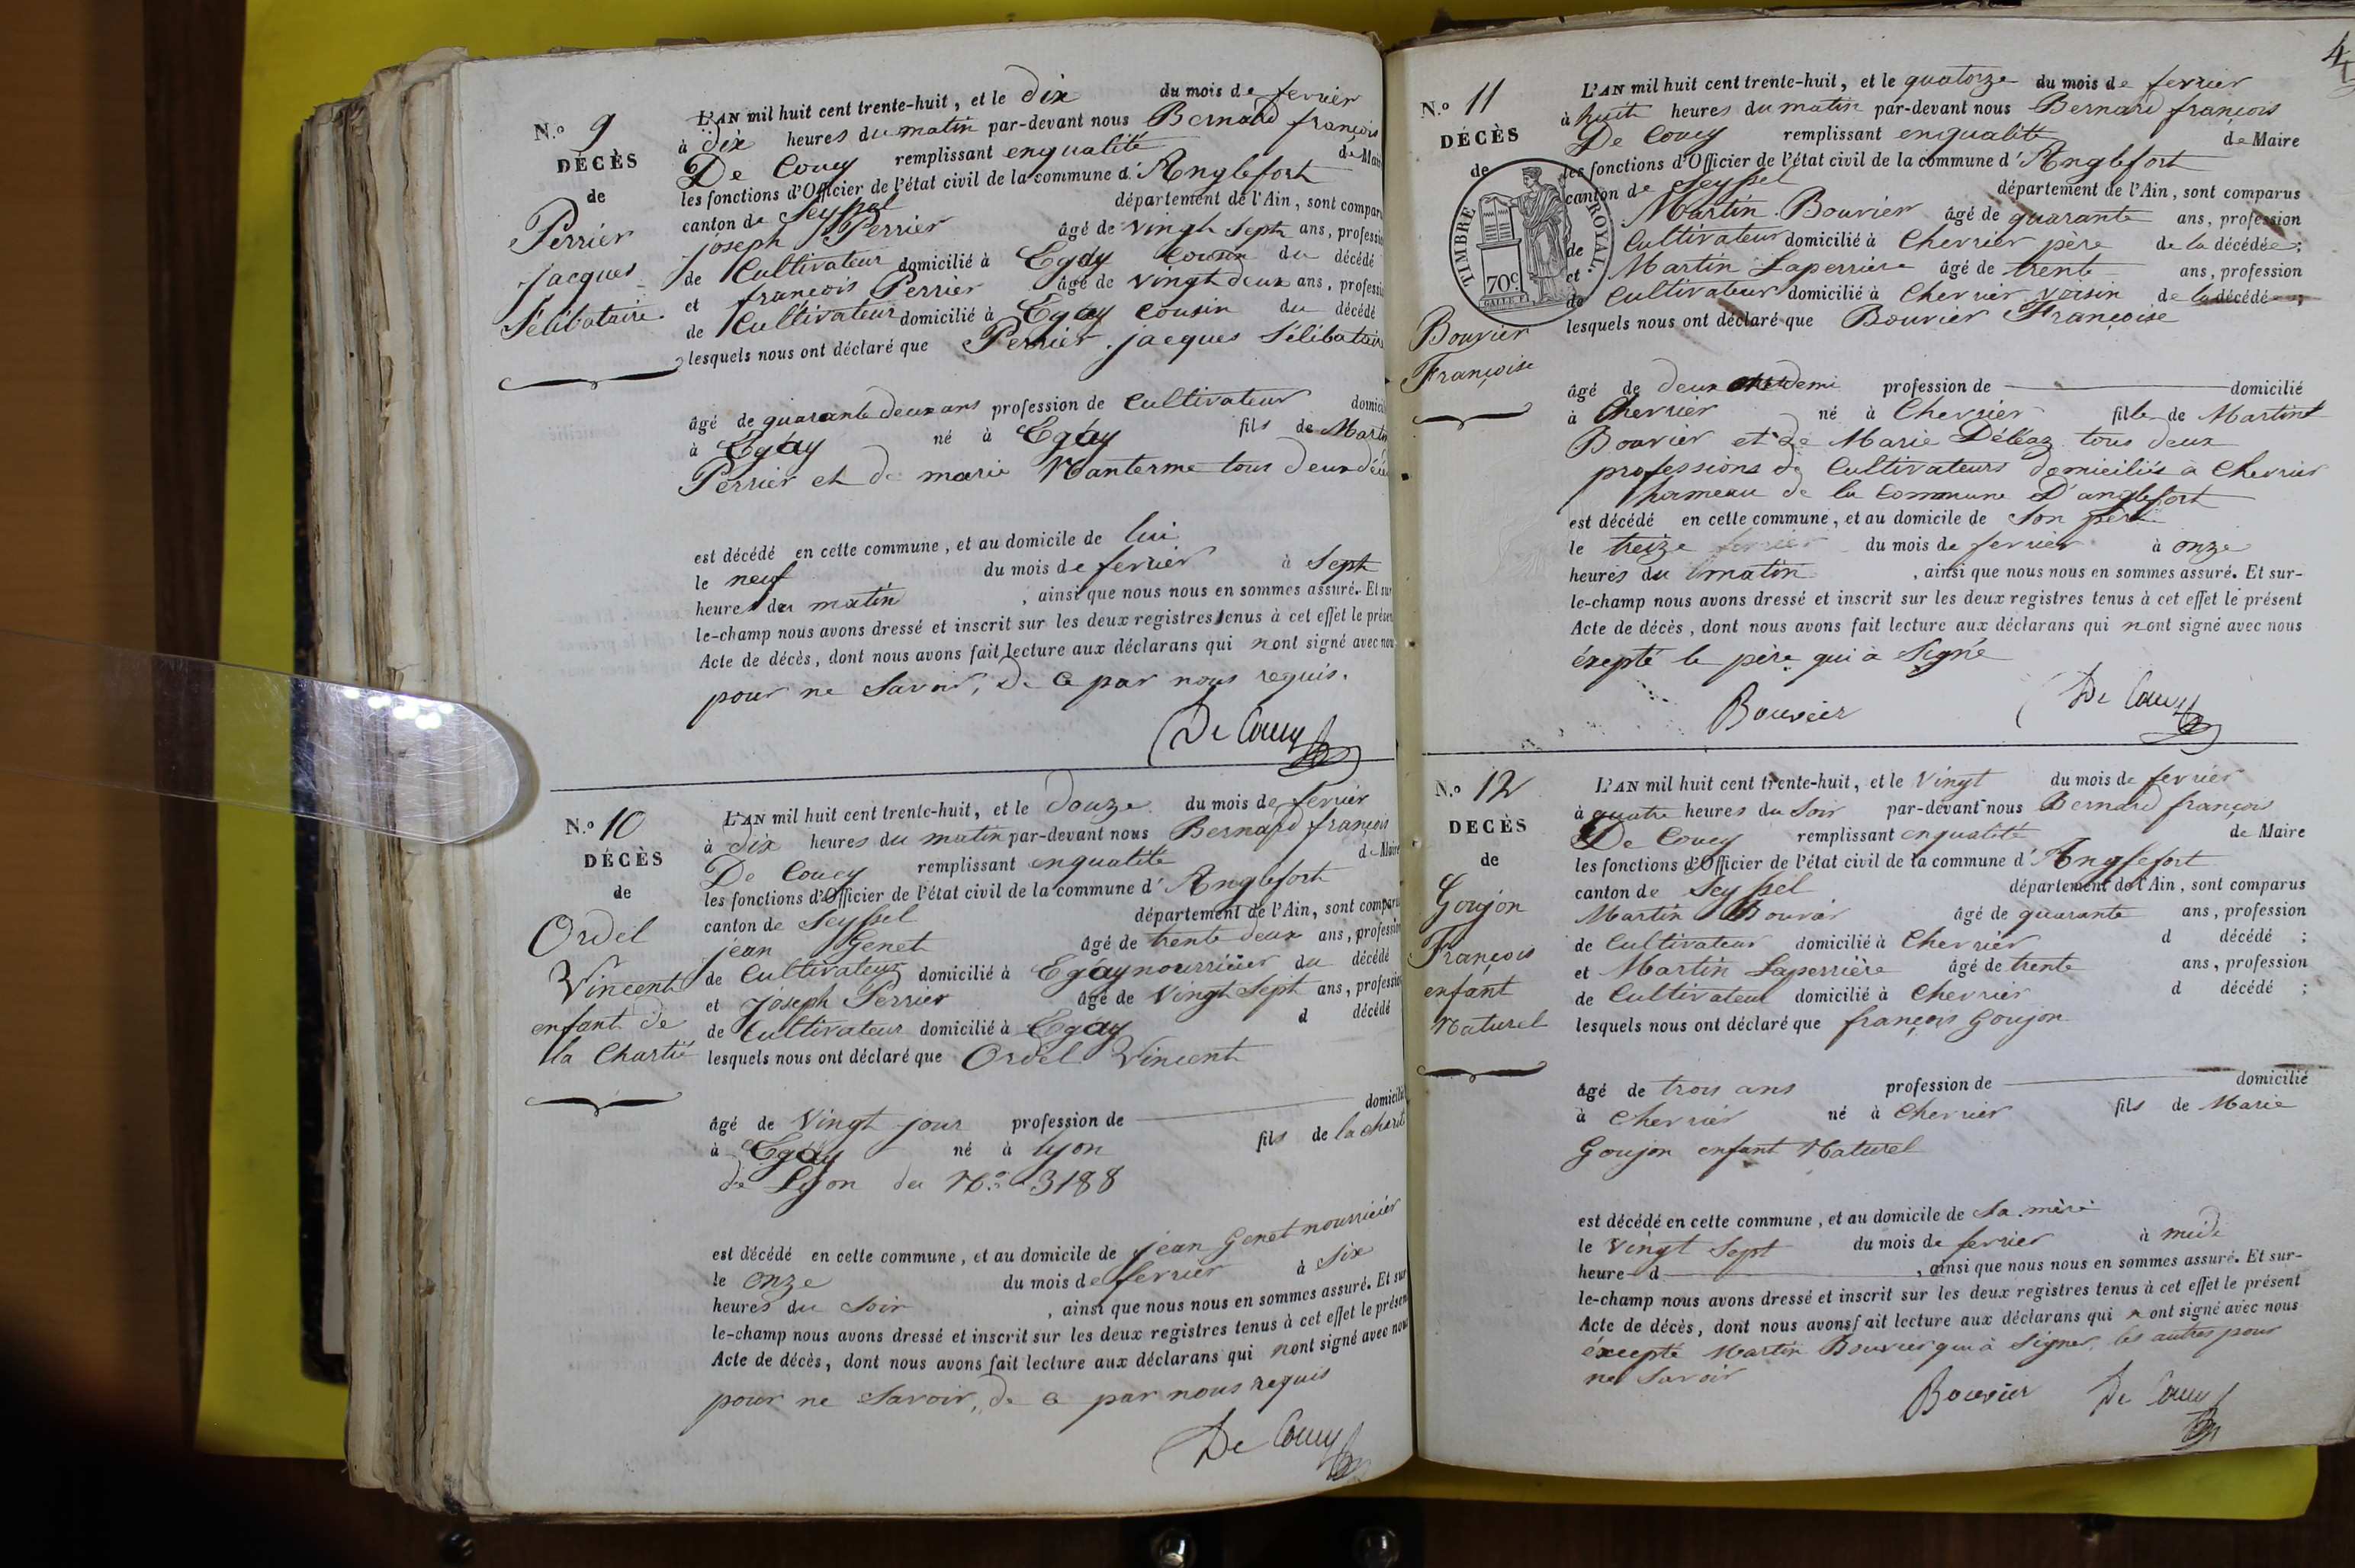 N.o 9
DÉCÈS
de
Perrier
jacques
Sélibataire
L'AN mil huit cent trente-huit, et le dix du mois de fevrier
à dix heures du matin par-devant nous Bernard françois
De Coucy remplissant enqualité de Maire
les fonctions d'Officier de l'état civil de la commune d'Anglefort
canton de Seyssel département de l'Ain, sont compar
joseph Perrier âgé de vingt sept ans, professi
de Cultivateur domicilié à Egay cousin du décédé
et françois Perrier âgé de vingt deux ans, professi
de Cultivateur domicilié à Egay cousin du décédé
lesquels nous ont déclaré que Perrier jacques Sélibataire
âgé de quarante deux ans profession de Cultivateur domicil
à Egay né à Egay fils de Martin
Perrier et de marie tous deux
est décédé en cette commune, et au domicile de lui
le neuf du mois de fevrier à sept
heures du matin, ainsi que nous nous en sommes assuré. Et sur
le-champ nous avons dressé et inscrit sur les deux registres tenus à cet effet le présen
Acte de décès, dont nous avons fait lecture aux déclarans qui nont signé avec nou
pour ne Savoir, de Ce par nous requis.
De Coucy
N.o 10
DÉCÈS
de
Ordel
Vincent
enfant de
la Charité
L'AN mil huit cent trente-huit, et le douze du mois de fevrier
à dix heures du matin par-devant nous Bernard françois
De Coucy remplissant enqualité de Maire
les fonctions d'Officier de l'état civil de la commune d'Anglefort
canton de Seyssel département de l'Ain, sont comparu
jean Genet âgé de trente deux ans, profession
de Cultivateur domicilié à Egay nourricier du décédé
et joseph Perrier âgé de Vingt Sept ans, profession
de Cultivateur domicilié à Egay d décédé
lesquels nous ont déclaré que Ordel Vincent
âgé de Vingt jour profession de domicilié
à Egay né à lyon fils de la charit
de Lyon du No 3188
est décédé en cette commune, et au domicile de jean Genet nourricier
le onze du mois de fevrier à Six
heures du Soir, ainsi que nous nous en sommes assuré. Et sur
le-champ nous avons dressé et inscrit sur les deux registres tenus à cet effet le présen
Acte de décès, dont nous avons fait lecture aux déclarans qui nont signé avec nou
pour ne Savoir, de Ce par nous requis
De Coucy
4
N.o 11
DÉCÈS
de
TIMBRE ROYAL
70c
Bouvier
Françoise
L'AN mil huit cent trente-huit, et le quatorze du mois de fevrier
à huit heures du matin par-devant nous Bernard françois
De Coucy remplissant enqualité de Maire
les fonctions d'Officier de l'état civil de la commune d'Anglefort
canton de Seyssel département de l'Ain, sont comparus
Martin Bouvier âgé de quarante ans, profession
de Cultivateur domicilié à Chevrier père de la décédée;
et Martin Laperrière âgé de trente ans, profession
de Cultivateur domicilié à Chevrier voisin de la décédée;
lesquels nous ont déclaré que Bouvier Françoise
âgé de deux demi profession de domicilié
à Chevrier né à Chevrier fille de Martin
Bouvier et de Marie Déléaz tous deux
professions de Cultivateurs domiciliés à Chevrier
hameau de la Commune D'anglefort
est décédé en cette commune, et au domicile de Son père
le treize du mois de fevrier à onze
heures du matin, ainsi que nous nous en sommes assuré. Et sur-
le-champ nous avons dressé et inscrit sur les deux registres tenus à cet effet le présent
Acte de décès, dont nous avons fait lecture aux déclarans qui nont signé avec nous
éxepté le père qui à Signé
Bouvier De Coucy
N.o 12
DECÈS
de
Goujon
François
enfant
Naturel
L'AN mil huit cent trente-huit, et le Vingt du mois de fevrier
à quatre heures du Soir par-devant nous Bernard françois
De Coucy remplissant enqualité de Maire
les fonctions d'Officier de l'état civil de la commune d'Anglefort
canton de Seyssel département de l'Ain, sont comparus
Martin Bouvier âgé de quarante ans, profession
de Cultivateur domicilié à Chevrier d décédé;
et Martin Laperrière âgé de trente ans, profession
de Cultivateur domicilié à Chevrier d décédé;
lesquels nous ont déclaré que françois Goujon
âgé de trois ans profession de domicilié
à Chevrier né à Chevrier fils de Marie
Goujon enfant Naturel
est décédé en cette commune, et au domicile de Sa mère
le Vingt Sept du mois de fevrier à midi
heure d, ainsi que nous nous en sommes assuré. Et sur-
le-champ nous avons dressé et inscrit sur les deux registres tenus à cet effet le présent
Acte de décès, dont nous avons fait lecture aux déclarans qui n ont signé avec nous
éxcepté Martin Bouvier qui à Signer, les autres pour
ne Savoir
Bouvier De Coucy